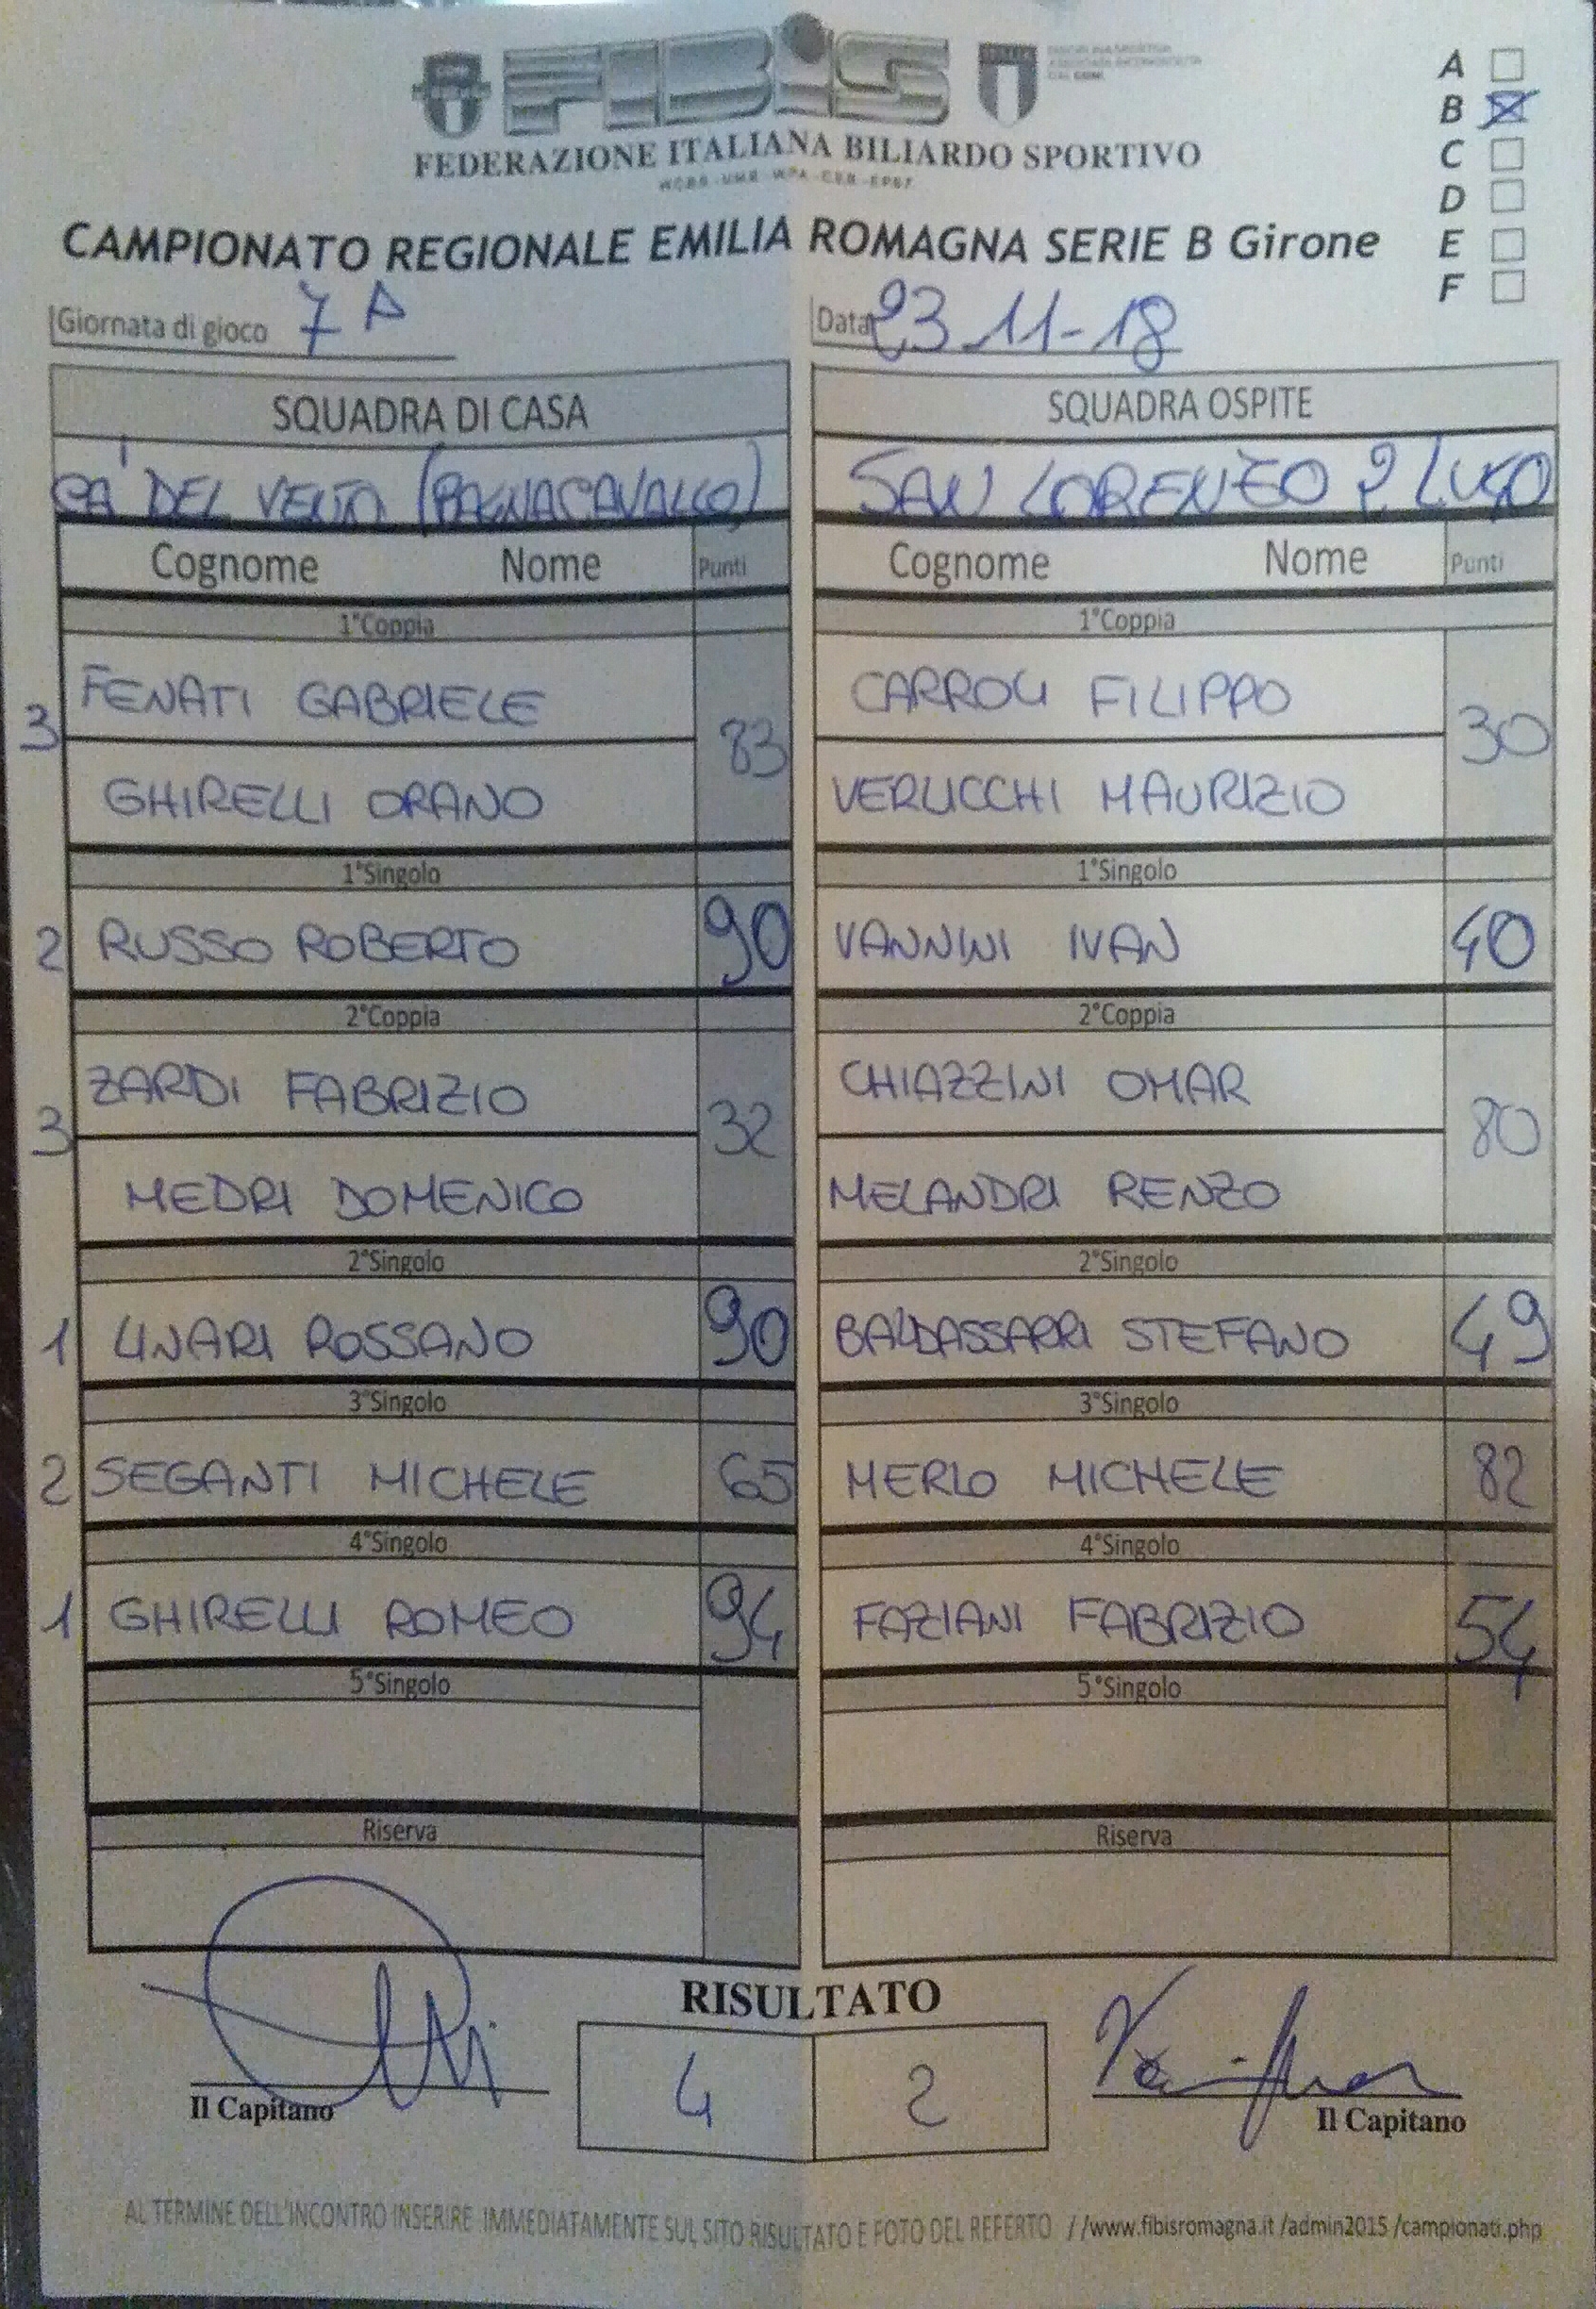 FIBiS
FEDERAZIONE ITALIANA BILIARDO SPORTIVO
WCBS - UMB - WPA - CEB - EPBF
A
B
C
D
E
F
CAMPIONATO REGIONALE EMILIA ROMAGNA SERIE B Girone
Giornata di gioco 7 A
Data 23-11-18
SQUADRA DI CASA
SQUADRA OSPITE
CA' DEL VENTO (BAGNACAVALLO)
SAN LORENZO 2 LUGO
Cognome Nome Punti
Cognome Nome Punti
1°Coppia
1°Coppia
3 FENATI GABRIELE 83
GHIRELLI ORANO
CARROLI FILIPPO 30
VERLICCHI MAURIZIO
1°Singolo
1°Singolo
2 RUSSO ROBERTO 90
VANNINI IVAN 40
2°Coppia
2°Coppia
3 ZARDI FABRIZIO 32
MEDRI DOMENICO
CHIAZZINI OMAR 80
MELANDRI RENZO
2°Singolo
2°Singolo
1 LINARI ROSSANO 90
BALDASSARRI STEFANO 49
3°Singolo
3°Singolo
2 SEGANTI MICHELE 65
MERLO MICHELE 82
4°Singolo
4°Singolo
1 GHIRELLI ROMEO 94
FAZIANI FABRIZIO 54
5°Singolo
5°Singolo
Riserva
Riserva
RISULTATO
4 2
Il Capitano
Il Capitano
AL TERMINE DELL'INCONTRO INSERIRE IMMEDIATAMENTE SUL SITO RISULTATO E FOTO DEL REFERTO //www.fibisromagna.it /admin2015 /campionati.php